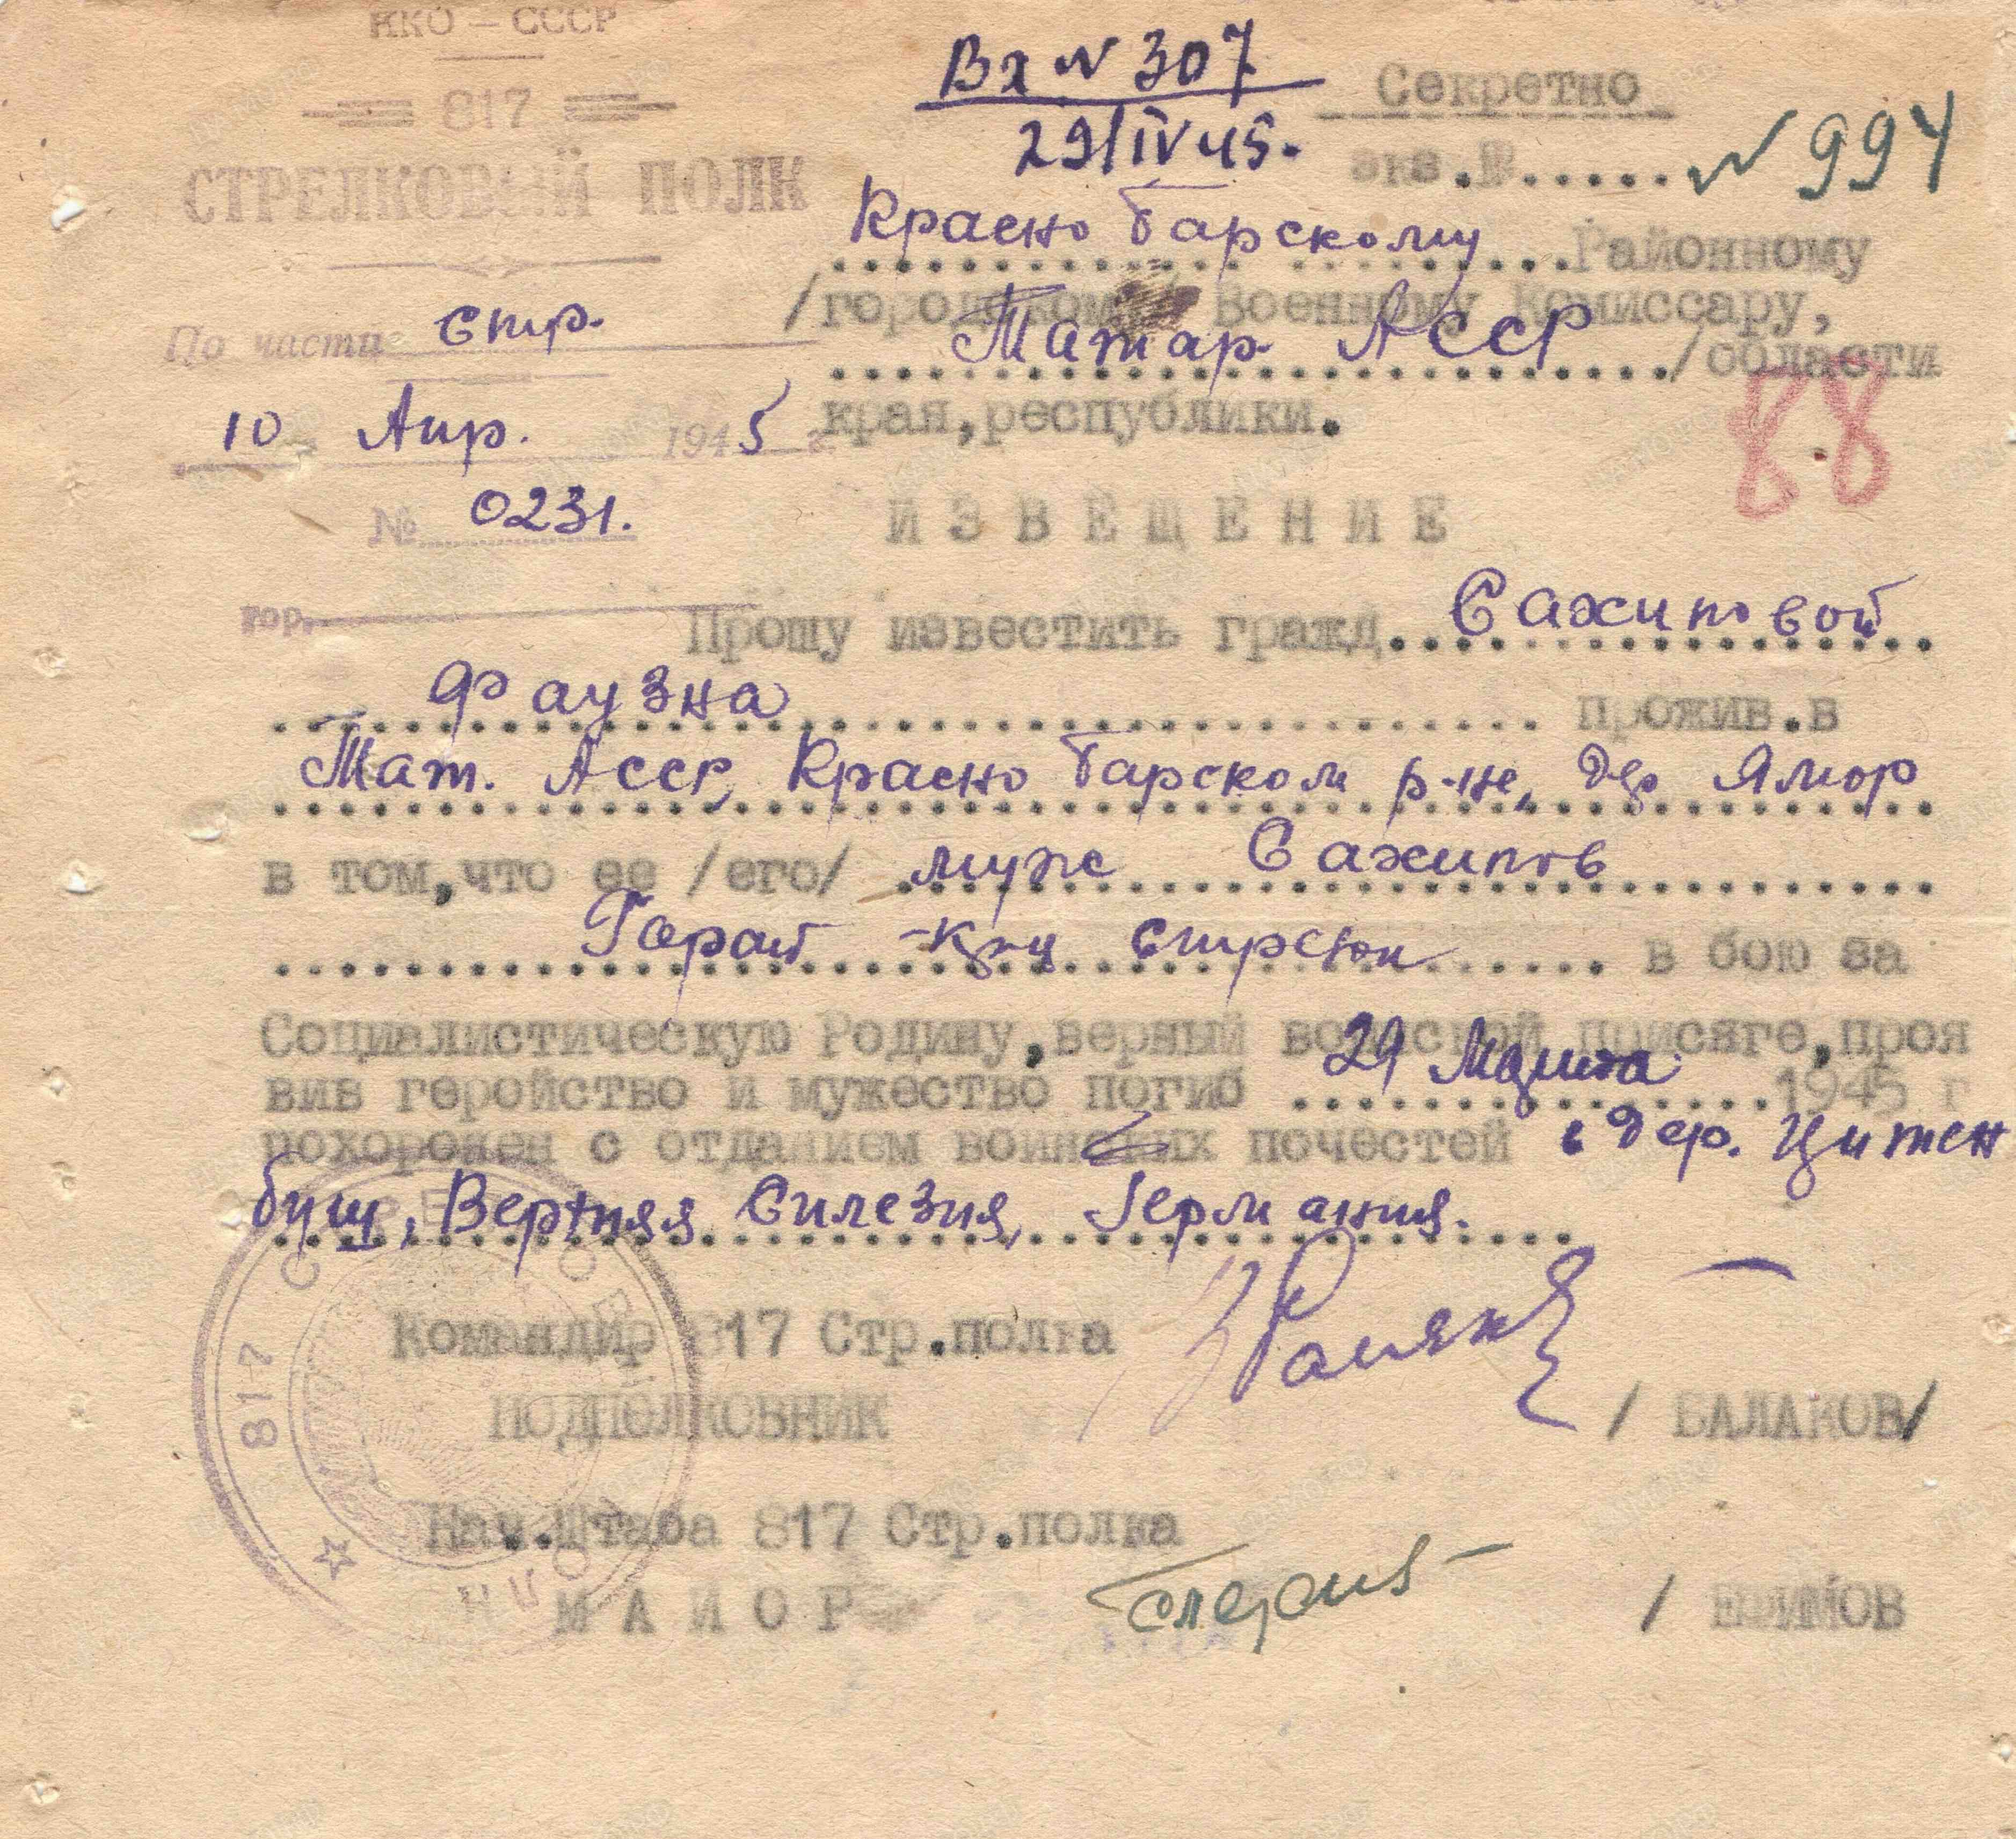 НКО — СССР
817
СТРЕЛКОВЫЙ ПОЛК
По части стр.
10 Апр. 1945 г.
№ 0231.
гор.
Вх № 307
29/IV 45.
Секретно
экз. № ..... № 994
Красно Барскому Районному
/городскому/ Военному Комиссару,
Татар. АССР /области
края, республики.
88
ИЗВЕЩЕНИЕ
Прошу известить гражд. Сахиповой
Фаузна прожив. в
Тат. Асср, Красно Барском р-не, дер Ямор
в том, что ее /его/ муж Сахипов
Гораб к-ц в бою за
Социалистическую Родину, верный воинской присяге, проя
вив геройство и мужество погиб 29 Марта 1945 г
похоронен с отданием воинских почестей в дер. Цитен
буш, Верхняя Силезия, Германия.
Командир 817 Стр. полка
ПОДПОЛКОВНИК / БАЛАКОВ/
Нач. Штаба 817 Стр. полка
МАЙОР / ЕФИМОВ
817 СТРЕЛКОВЫЙ ПОЛК НКО